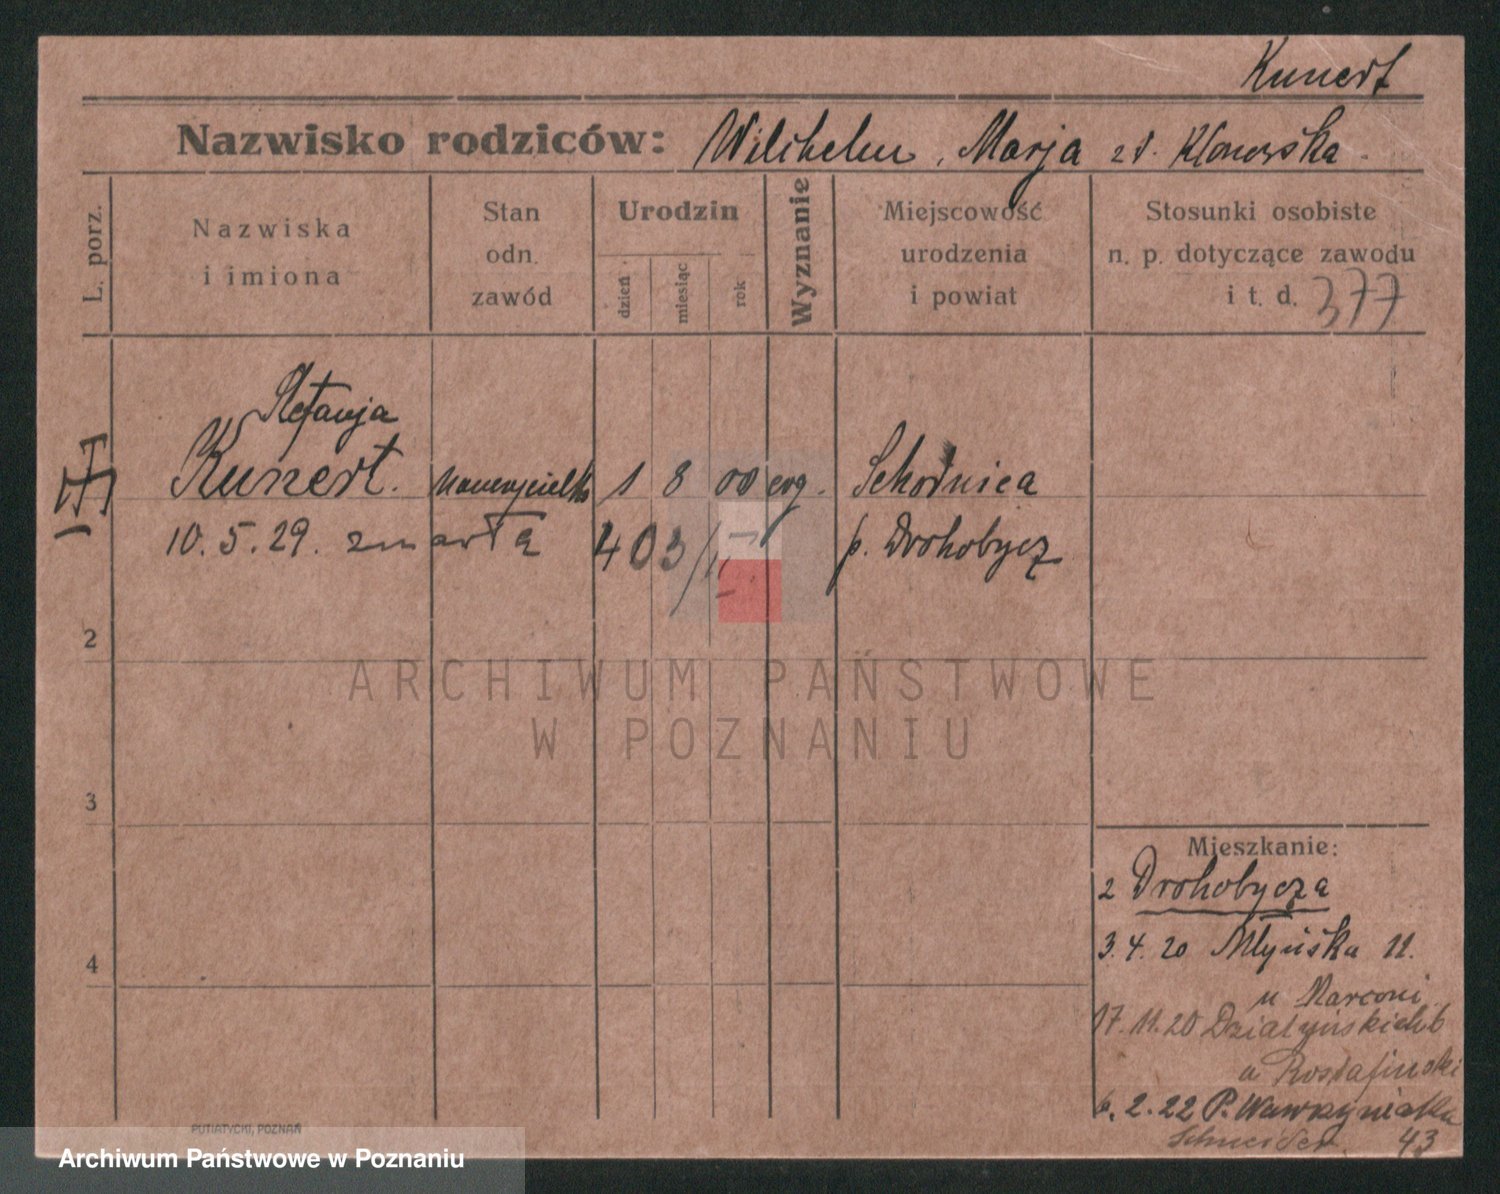 Kunert
Nazwisko rodziców: Wilihelm, Marja zd. Klonowska.
L. porz.
Nazwiska
i imiona
Stan
odn.
zawód
Urodzin
dzień
miesiąc
rok
Wyznanie
Miejscowość
urodzenia
i powiat
Stosunki osobiste
n. p. dotyczące zawodu
i t. d. 377
Stefanja
Kunert. nauczycielka 1 8 00 ewg. Schodnica
10. 5. 29. zmarła 403/II. p. Drohobycz
2
3
4
Mieszkanie:
z Drohobycza
3. 4. 20 Młyńska 11.
u Marconi
17. 11. 20 Działyńskich 6
u Rostafinski
6. 2. 22 P. Wawrzyniaka
Schneider. 43
PUTIATYCKI, POZNAŃ
ARCHIWUM PAŃSTWOWE
W POZNANIU
Archiwum Państwowe w Poznaniu